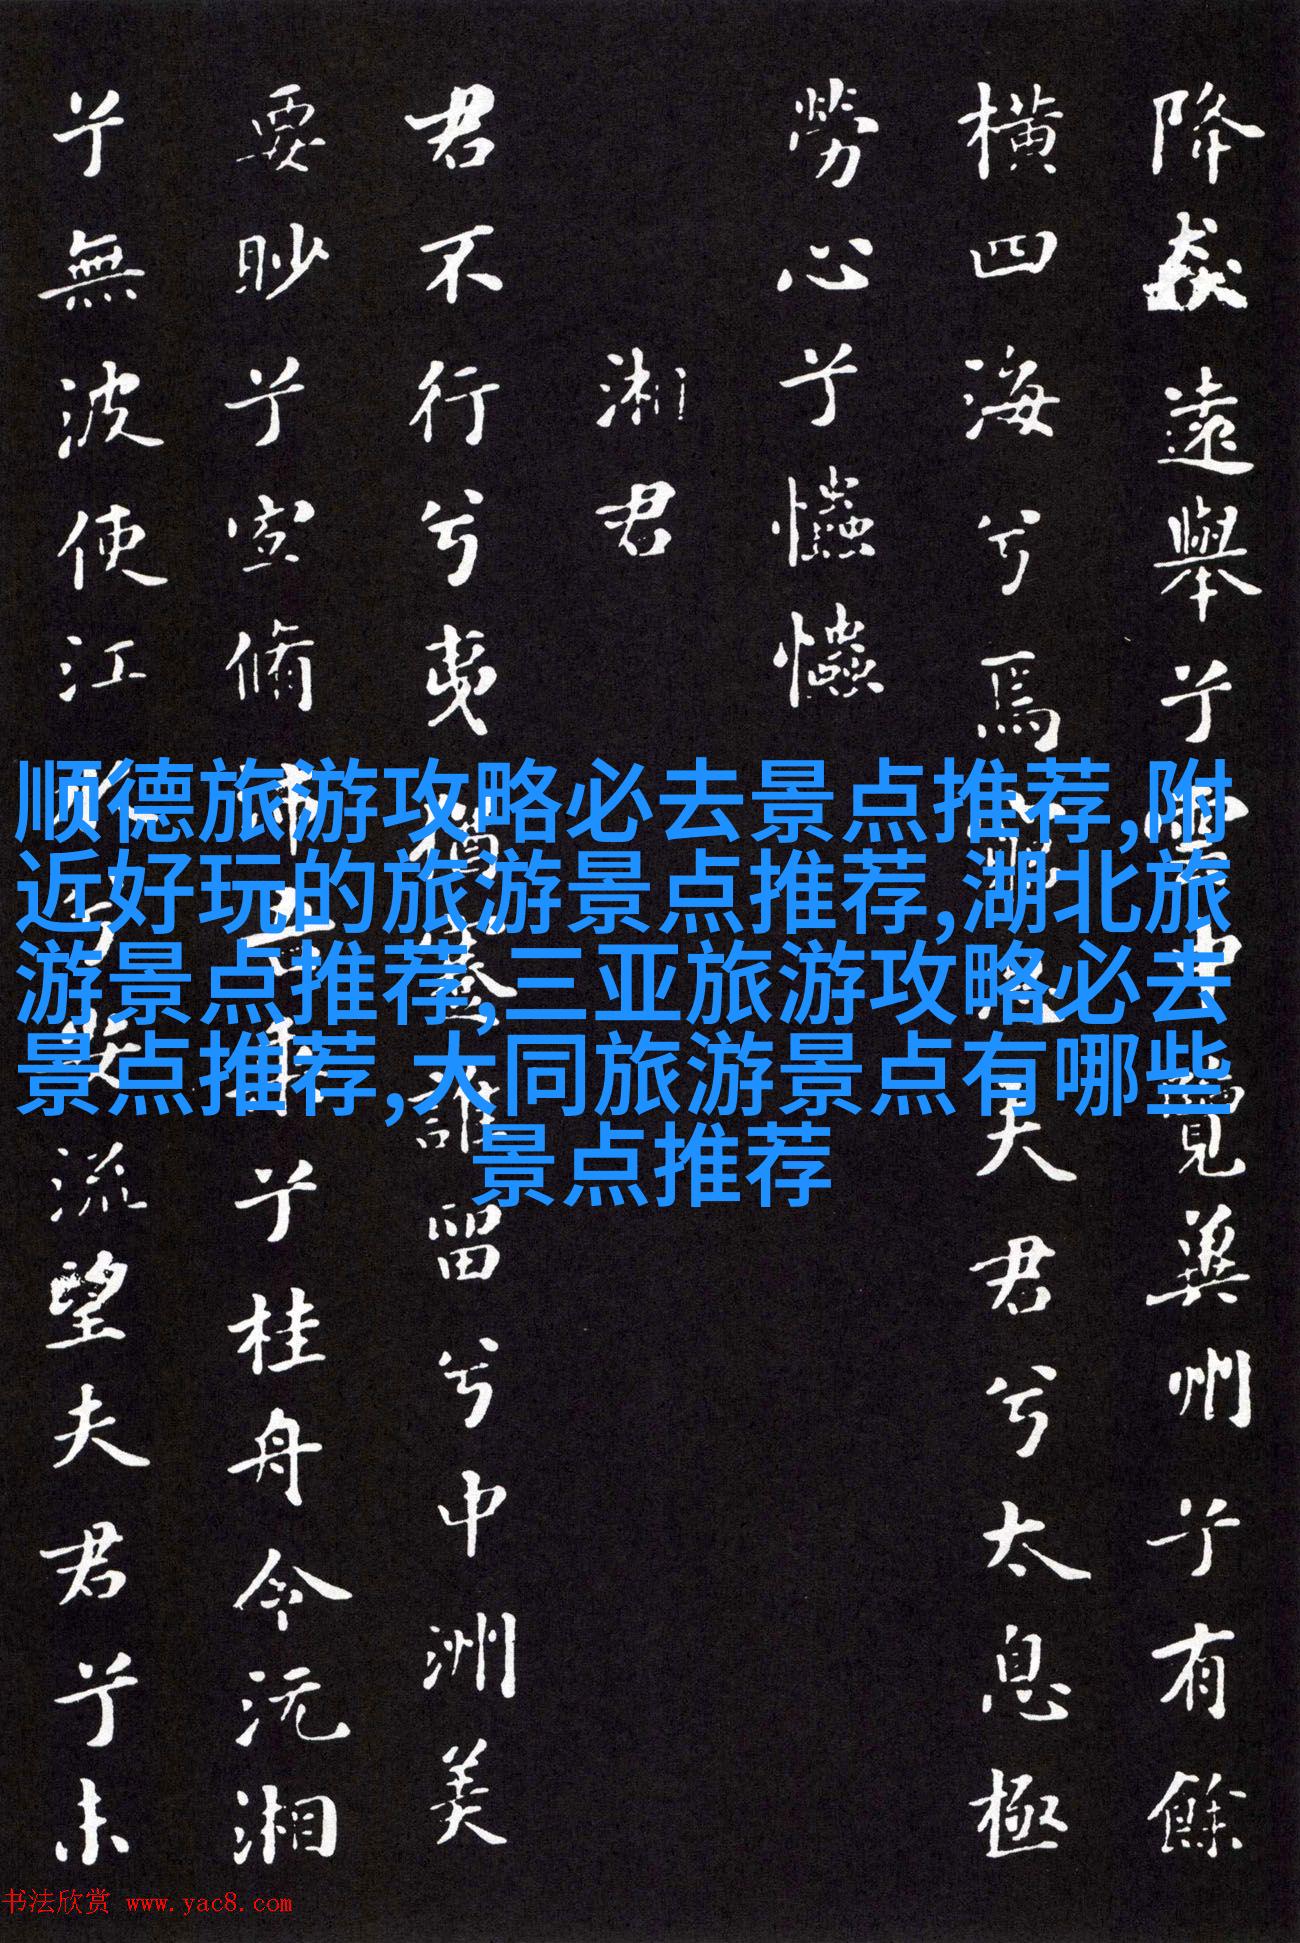 降猋遠舉兮雲中覽兾州兮有餘
橫四海兮焉窮思夫君兮太息極
勞心兮𢥞𢥞
湘君
君不行兮夷猶蹇誰留兮中洲美
要眇兮宜脩沛吾乘兮桂舟令沅湘
兮無波使江水兮安流望夫君兮未
顺德旅游攻略必去景点推荐,附
近好玩的旅游景点推荐,湖北旅
游景点推荐,三亚旅游攻略必去
景点推荐,大同旅游景点有哪些
景点推荐
书法欣赏 www.yac8.com